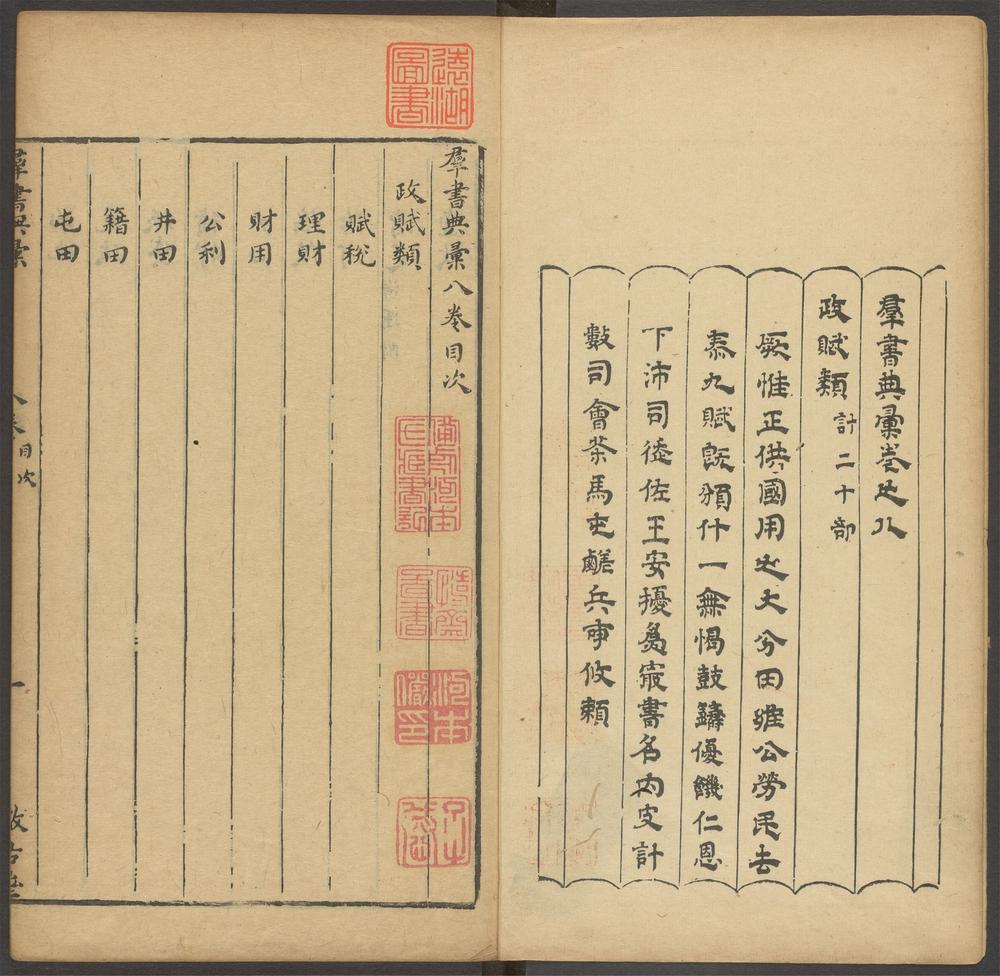 羣書典彙卷之八
政賦類計二十部
厥惟正供國用之大分田雖公勞民去
泰九賦既頒什一無愒鼓鑄優饑仁恩
下沛司徒佐王安擾爲㝡書名內史計
數司會茶馬屯鹺兵事攸賴
遠湖圖書
羣書典彙八卷目次
政賦類
賦稅
理財
財用
公利
井田
籍田
屯田
羣書典彙
八卷目次
一
敦古堂